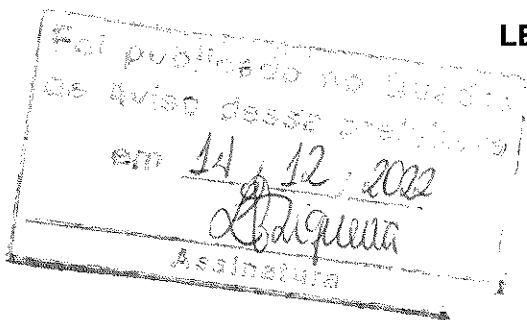 LE
Foi publicado no Quadro
de aviso dessa prefeitura
em 14, 12, 2022
Assinatura